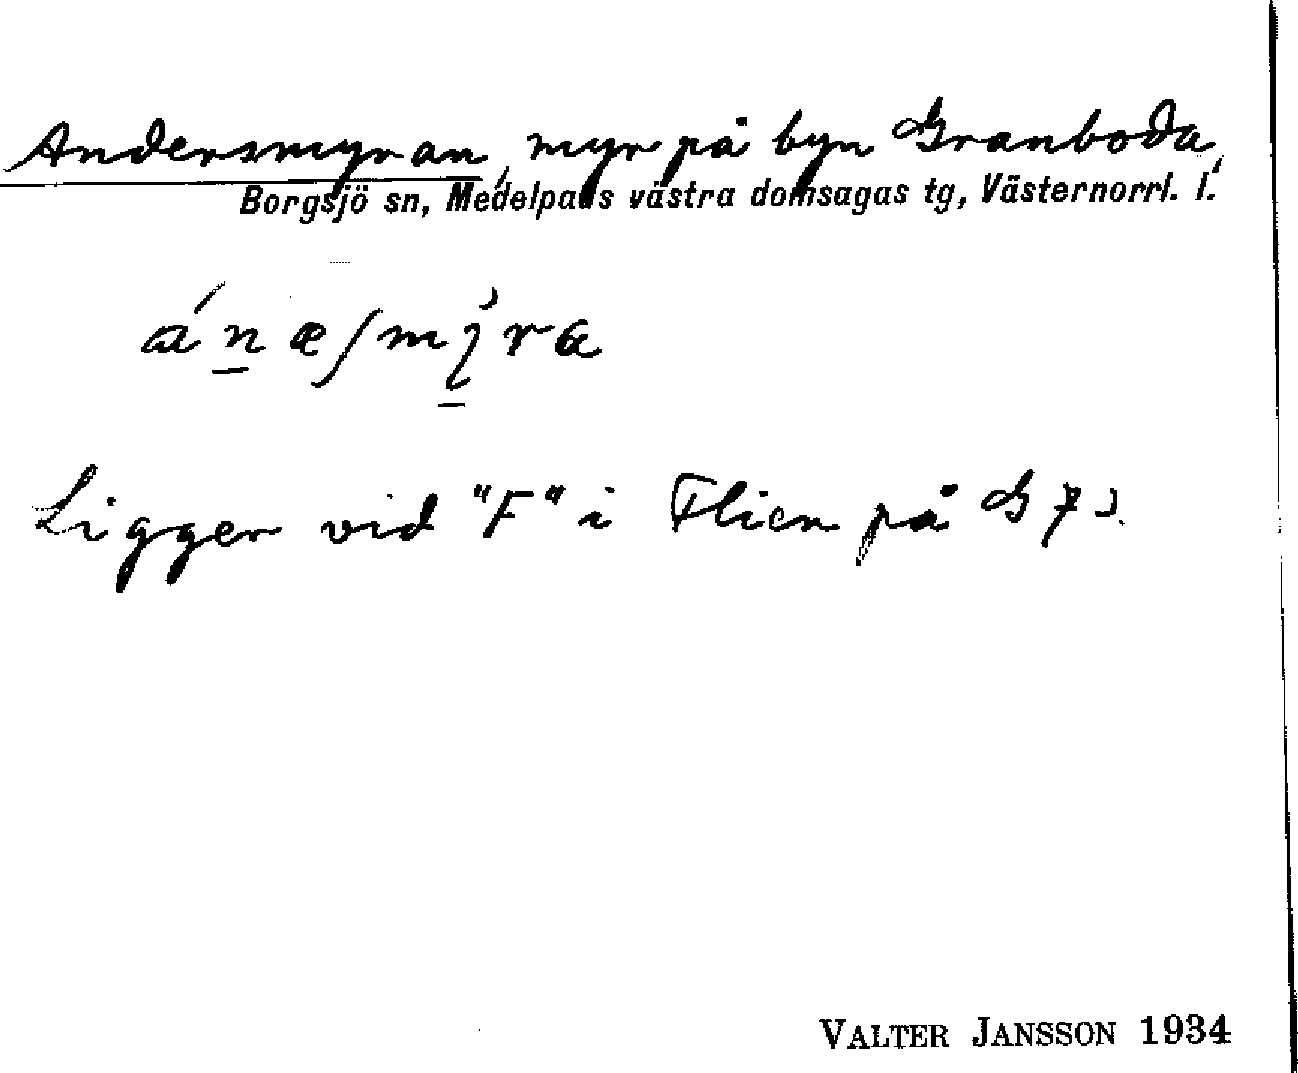 Andersmyran, myr på byn Granboda,
Borgsjö sn, Medelpads västra domsagas tg, Västernorrl. l.
Ligger vid "F" i Flien på G
VALTER JANSSON 1934